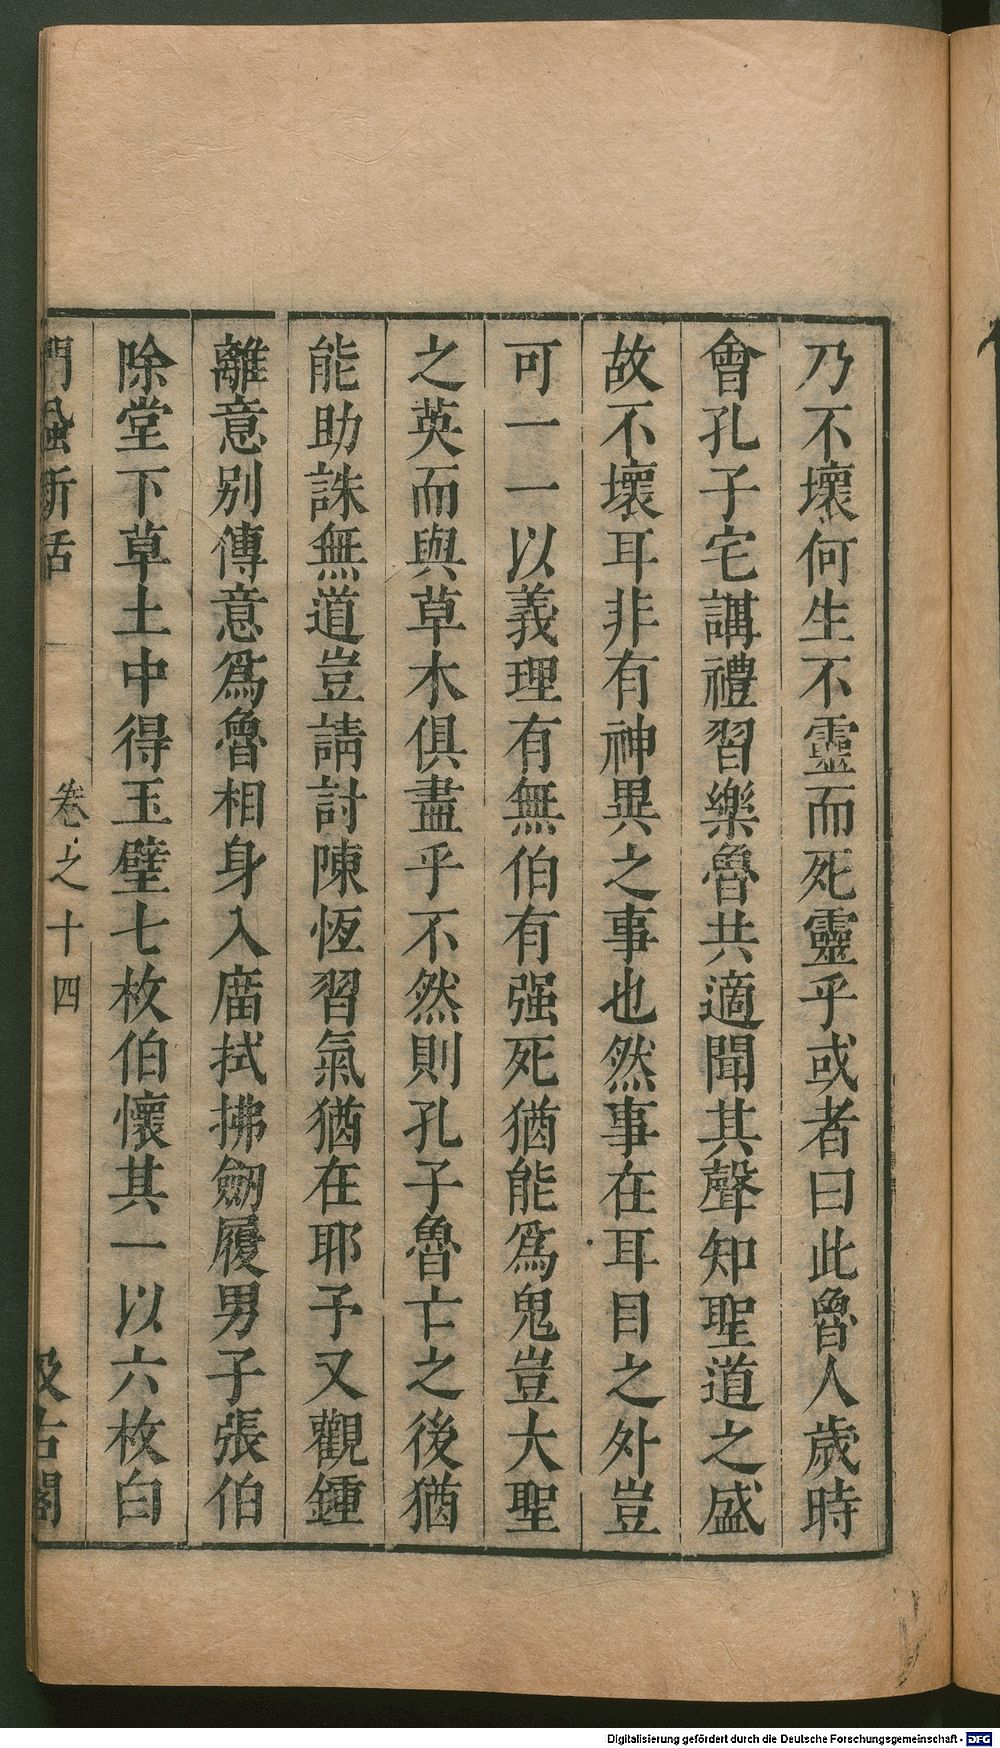 乃不壞何生不靈而死靈乎或者曰此魯人歲時
會孔子宅講禮習樂魯共適聞其聲知聖道之盛
故不壞耳非有神異之事也然事在耳目之外豈
可一一以義理有無伯有强死猶能爲鬼豈大聖
之英而與草木俱盡乎不然則孔子魯亡之後猶
能助誅無道豈請討陳恆習氣猶在耶予又觀鍾
離意別傳意爲魯相身入廟拭拂劒履男子張伯
除堂下草土中得玉璧七枚伯懷其一以六枚白
門蝨新話 卷之十四 汲古閣
Digitalisierung gefördert durch die Deutsche Forschungsgemeinschaft - DFG